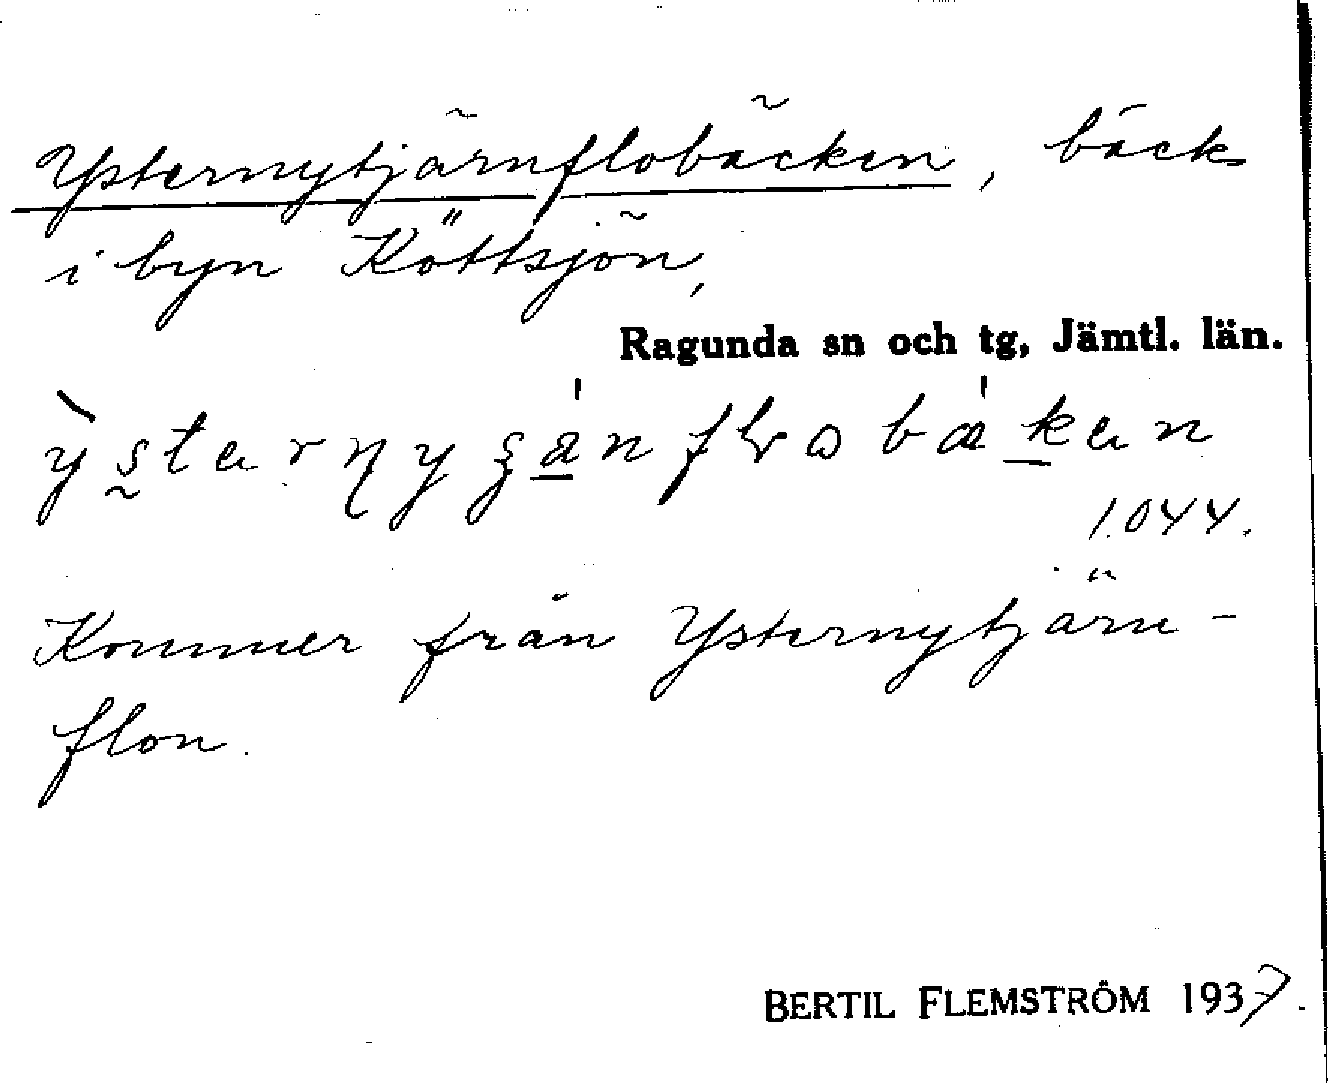 Ysternytjärnflobäcken, bäck
i byn Köttsjön,
Ragunda sn och tg, Jämtl. län.
1.044.
Kommer från Ysternytjärn-
flon.
BERTIL FLEMSTRÖM 1937.